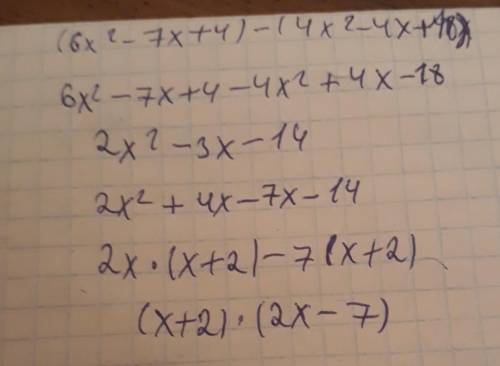 (6x² - 7x + 4) - (4x² - 4x + 18)
6x² - 7x + 4 - 4x² + 4x - 18
2x² - 3x - 14
2x² + 4x - 7x - 14
2x · (x + 2) - 7 (x + 2)
(x + 2) · (2x - 7)